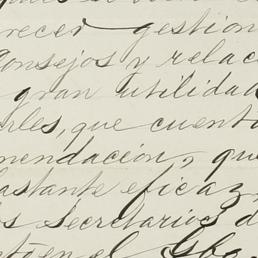 recer gestion
Consejos y relac
gran utilidad
erles, que cuento
mendación, que
bastante eficaz,
os Secretarios d
en el Gbo